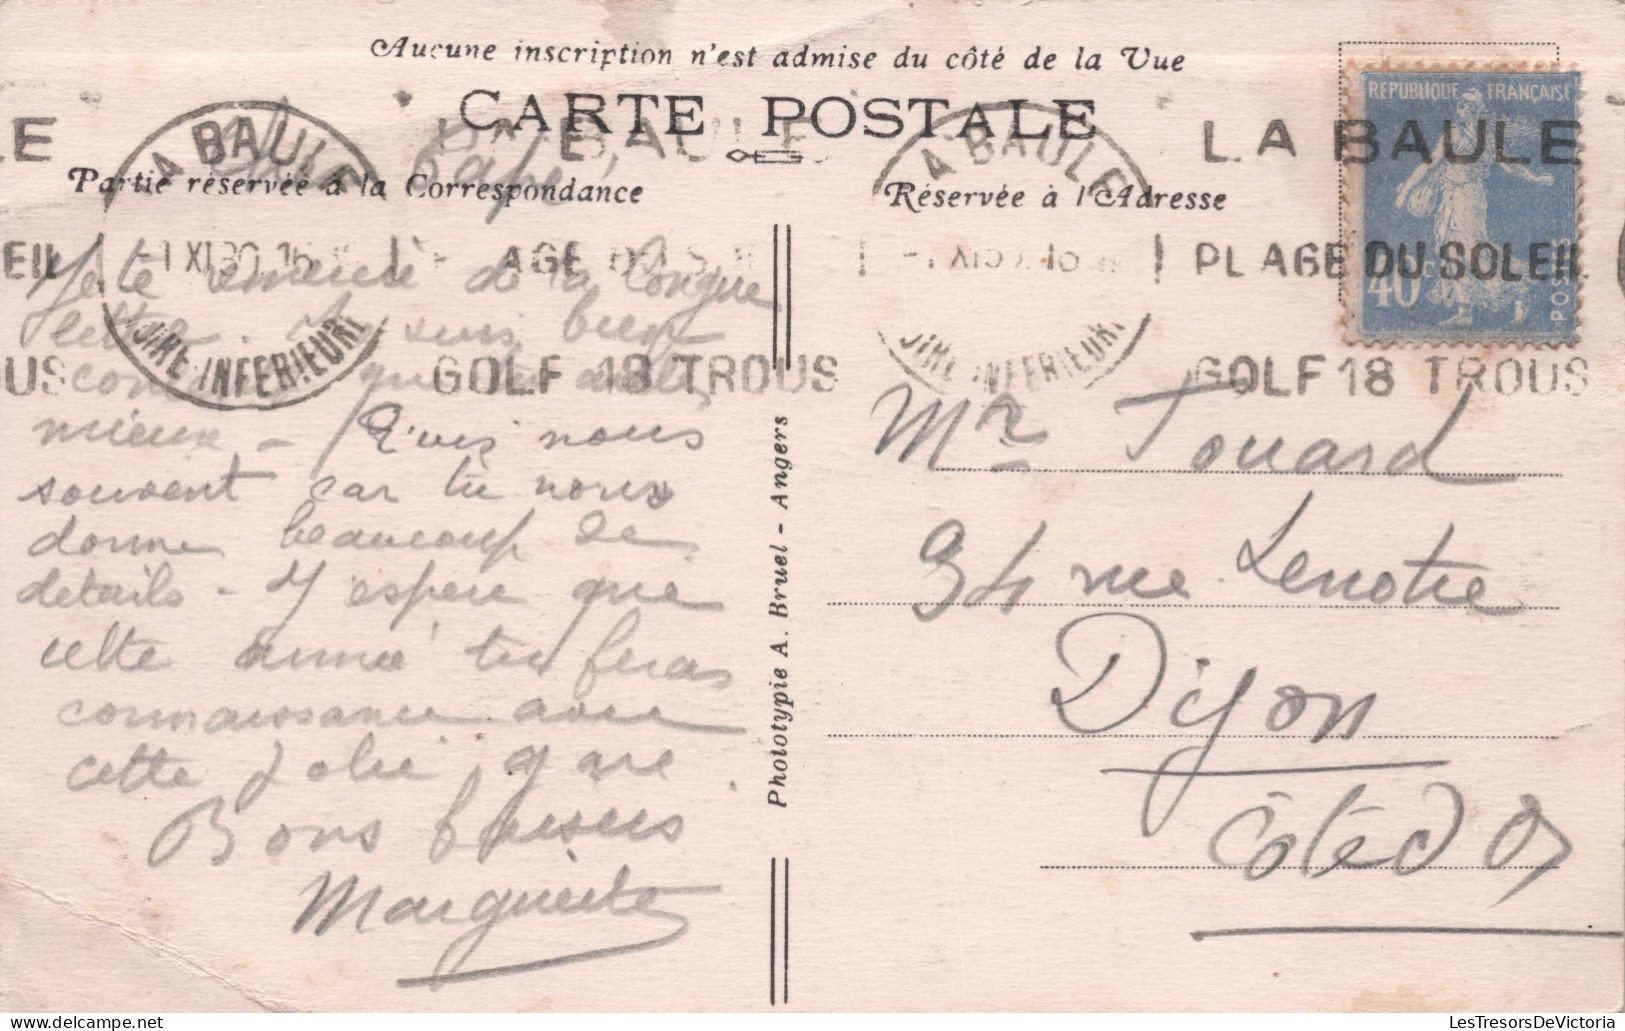 Aucune inscription n'est admise du côté de la Vue
CARTE POSTALE
Partie réservée à la Correspondance
Réservée à l'Adresse
LA BAULE
PLAGE DU SOLEIL
GOLF 18 TROUS
LA BAULE
-1 XI 30 16
LOIRE INFERIEURE
REPUBLIQUE FRANÇAISE
40c
POSTES
Je te remercie de ta longue
lettre. Je suis bien
contente que tu ailles
mieux - Ecris nous
souvent car tu nous
donnes beaucoup de
details - J'espere que
cette année tu feras
connaissance avec
cette jolie gare
Bons baisers
Marguerite
Phototypie A. Bruel - Angers
Mr Touard
34 rue Lenotre
Dijon
Côte d'Or
LesTresorsDeVictoria.com